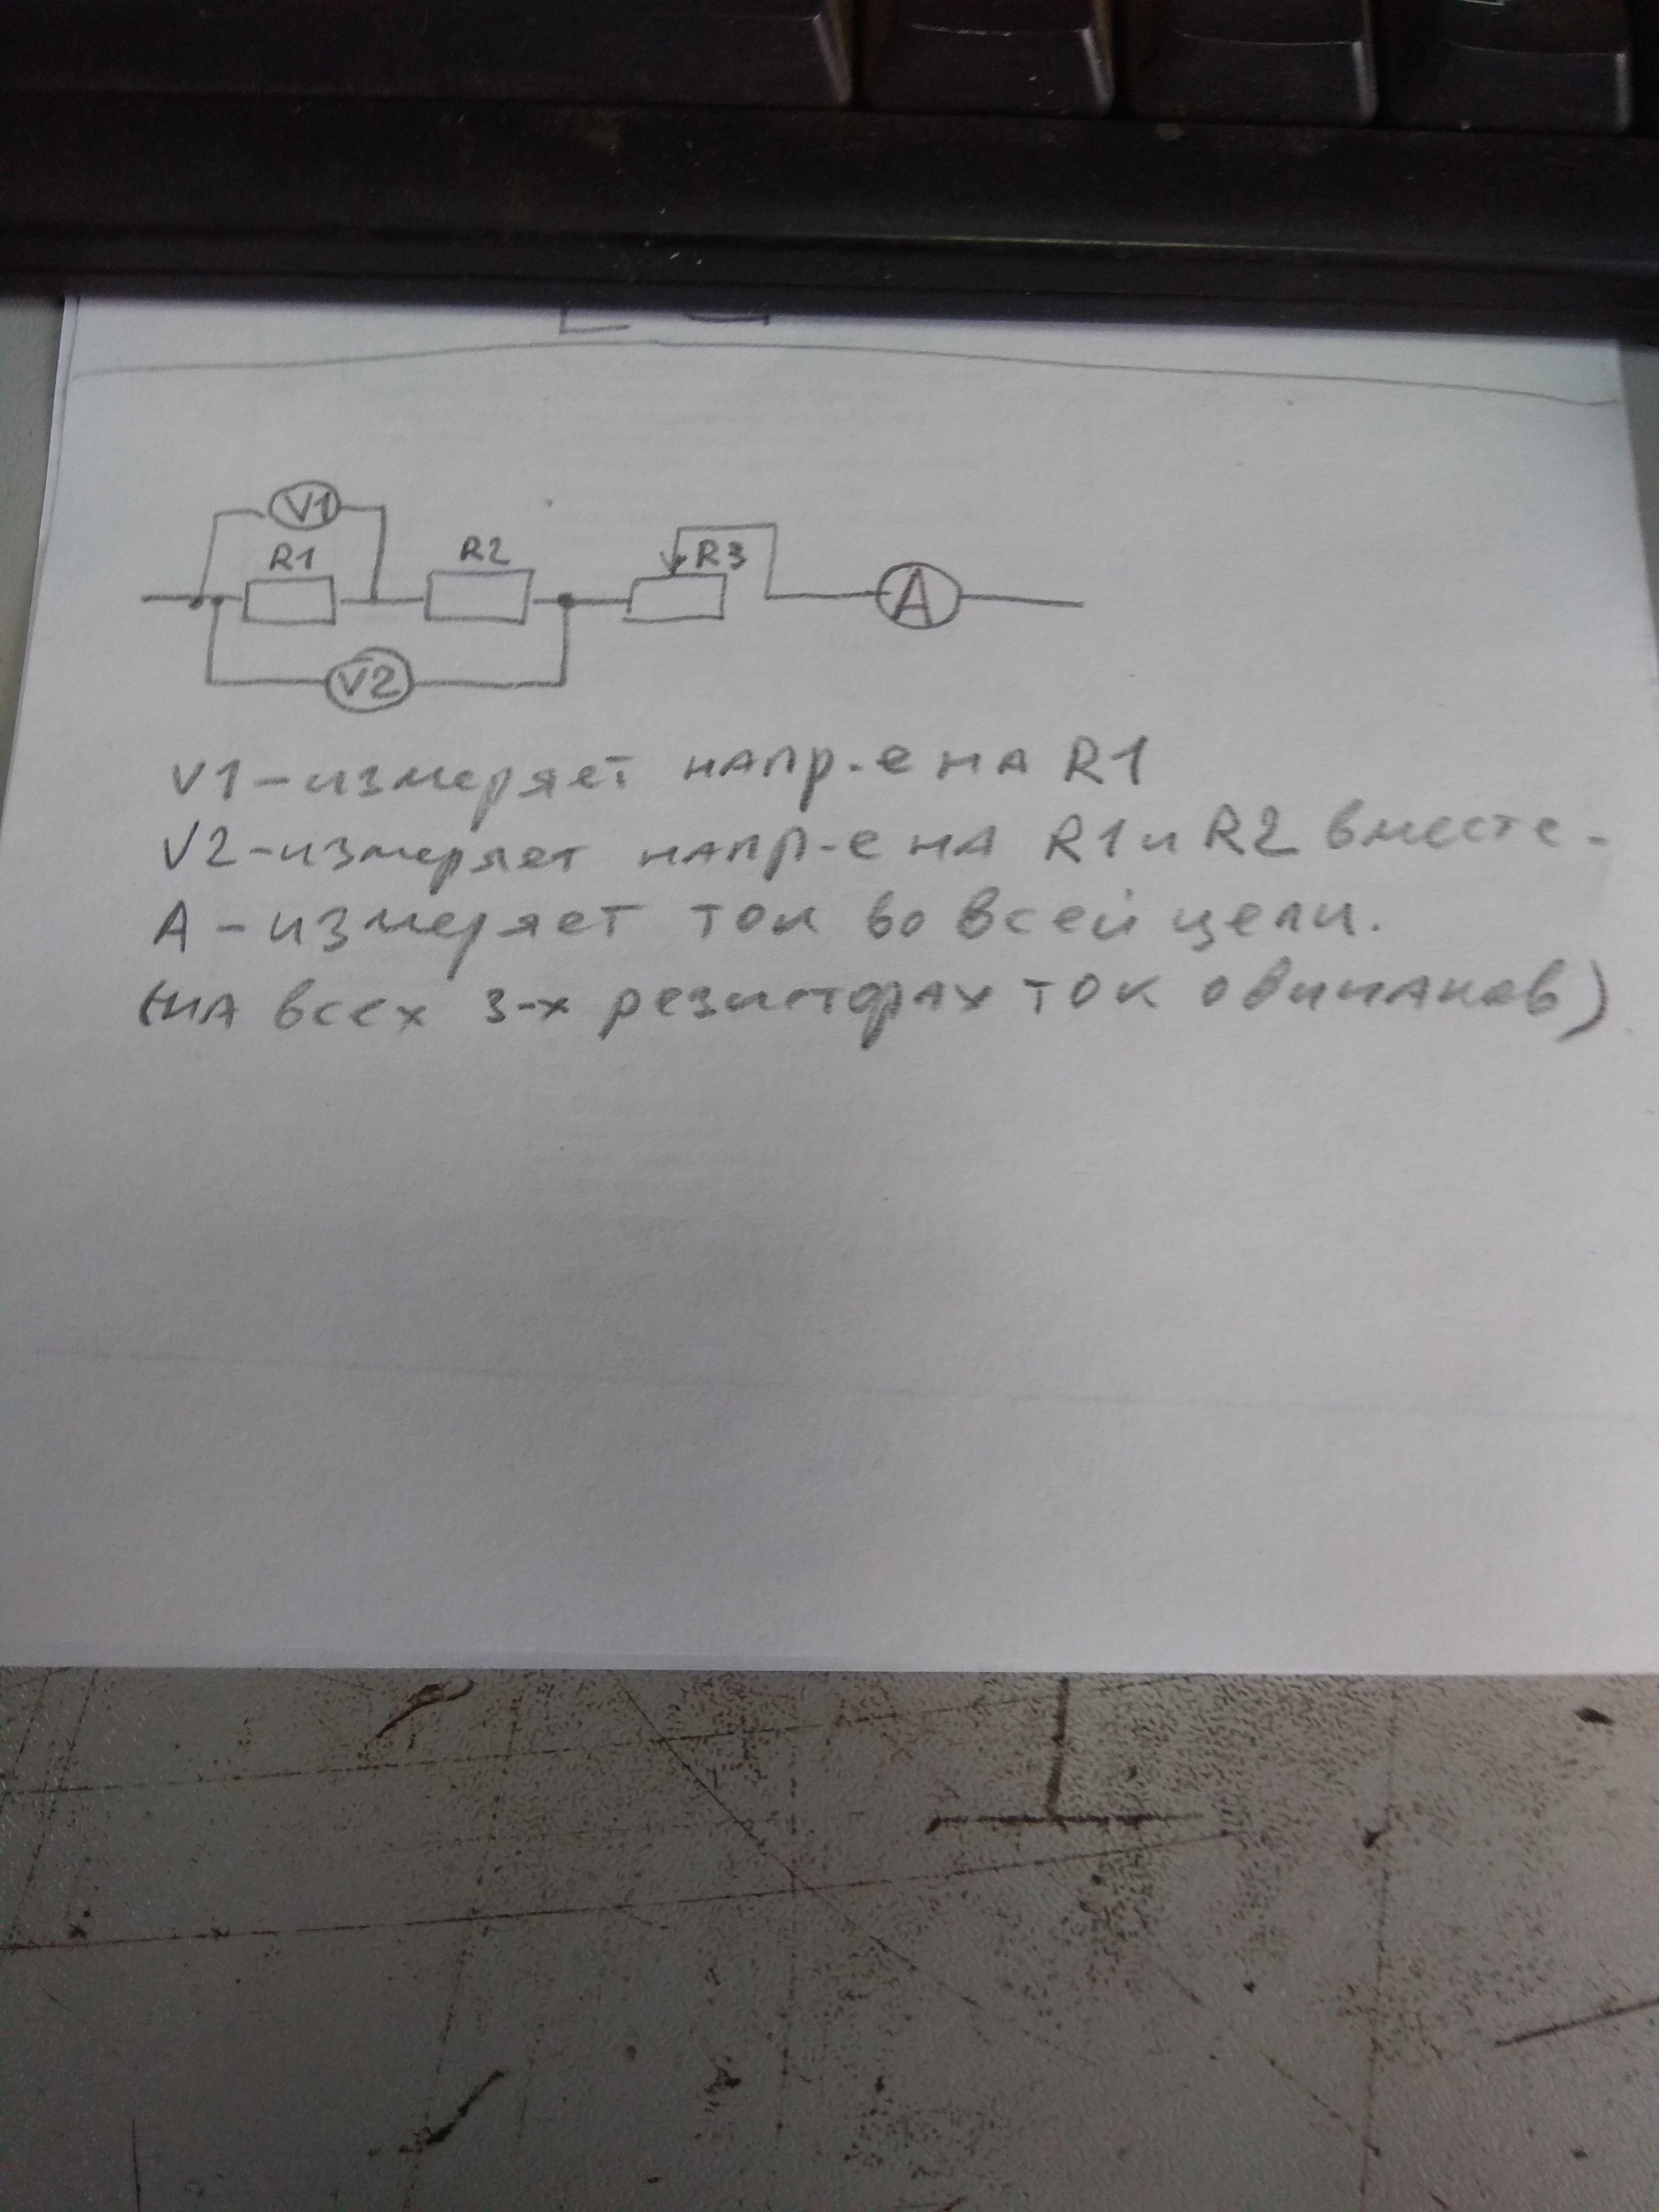 V1
R1
R2
R3
A
V2
V1-измеряет напр-е на R1
V2-измеряет напр-е на R1 и R2 вместе.
А-измеряет ток во всей цепи.
(на всех 3-х резисторах ток одинаков)